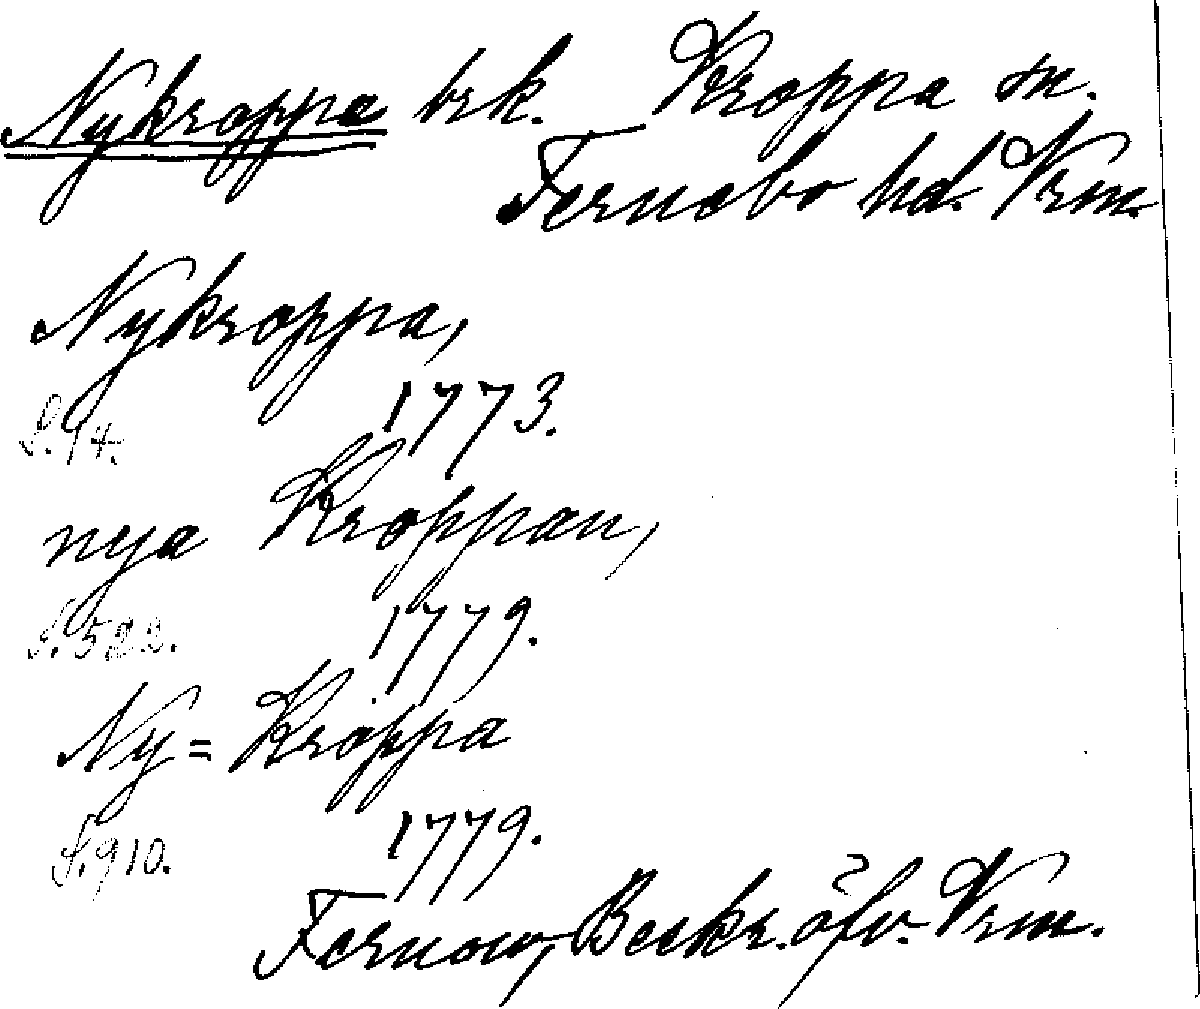 Nykroppa brk. Kroppa sn.
Fernebo hd. Vrm.
Nykroppa,
S. 14. 1773.
nya Kroppan,
S. 522. 1779.
Ny=Kroppa
S. 910. 1779.
Fernow, Beskr. öfv. Vrm.